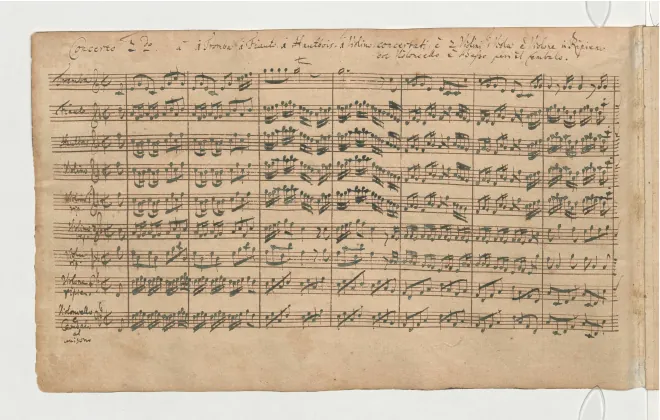 Concerto 2do à 1 Tromba 1 Fiauto 1 Hautbois 1 Violino concertati è 2 Violini 1 Viola è Violone in Ripieno
col Violoncello è Basso per il Cembalo.
Tromba
Fiauto
Hautbois
Violino
Violino
Violino
Viola
Violone
Violoncello
Cembalo
al
unisono